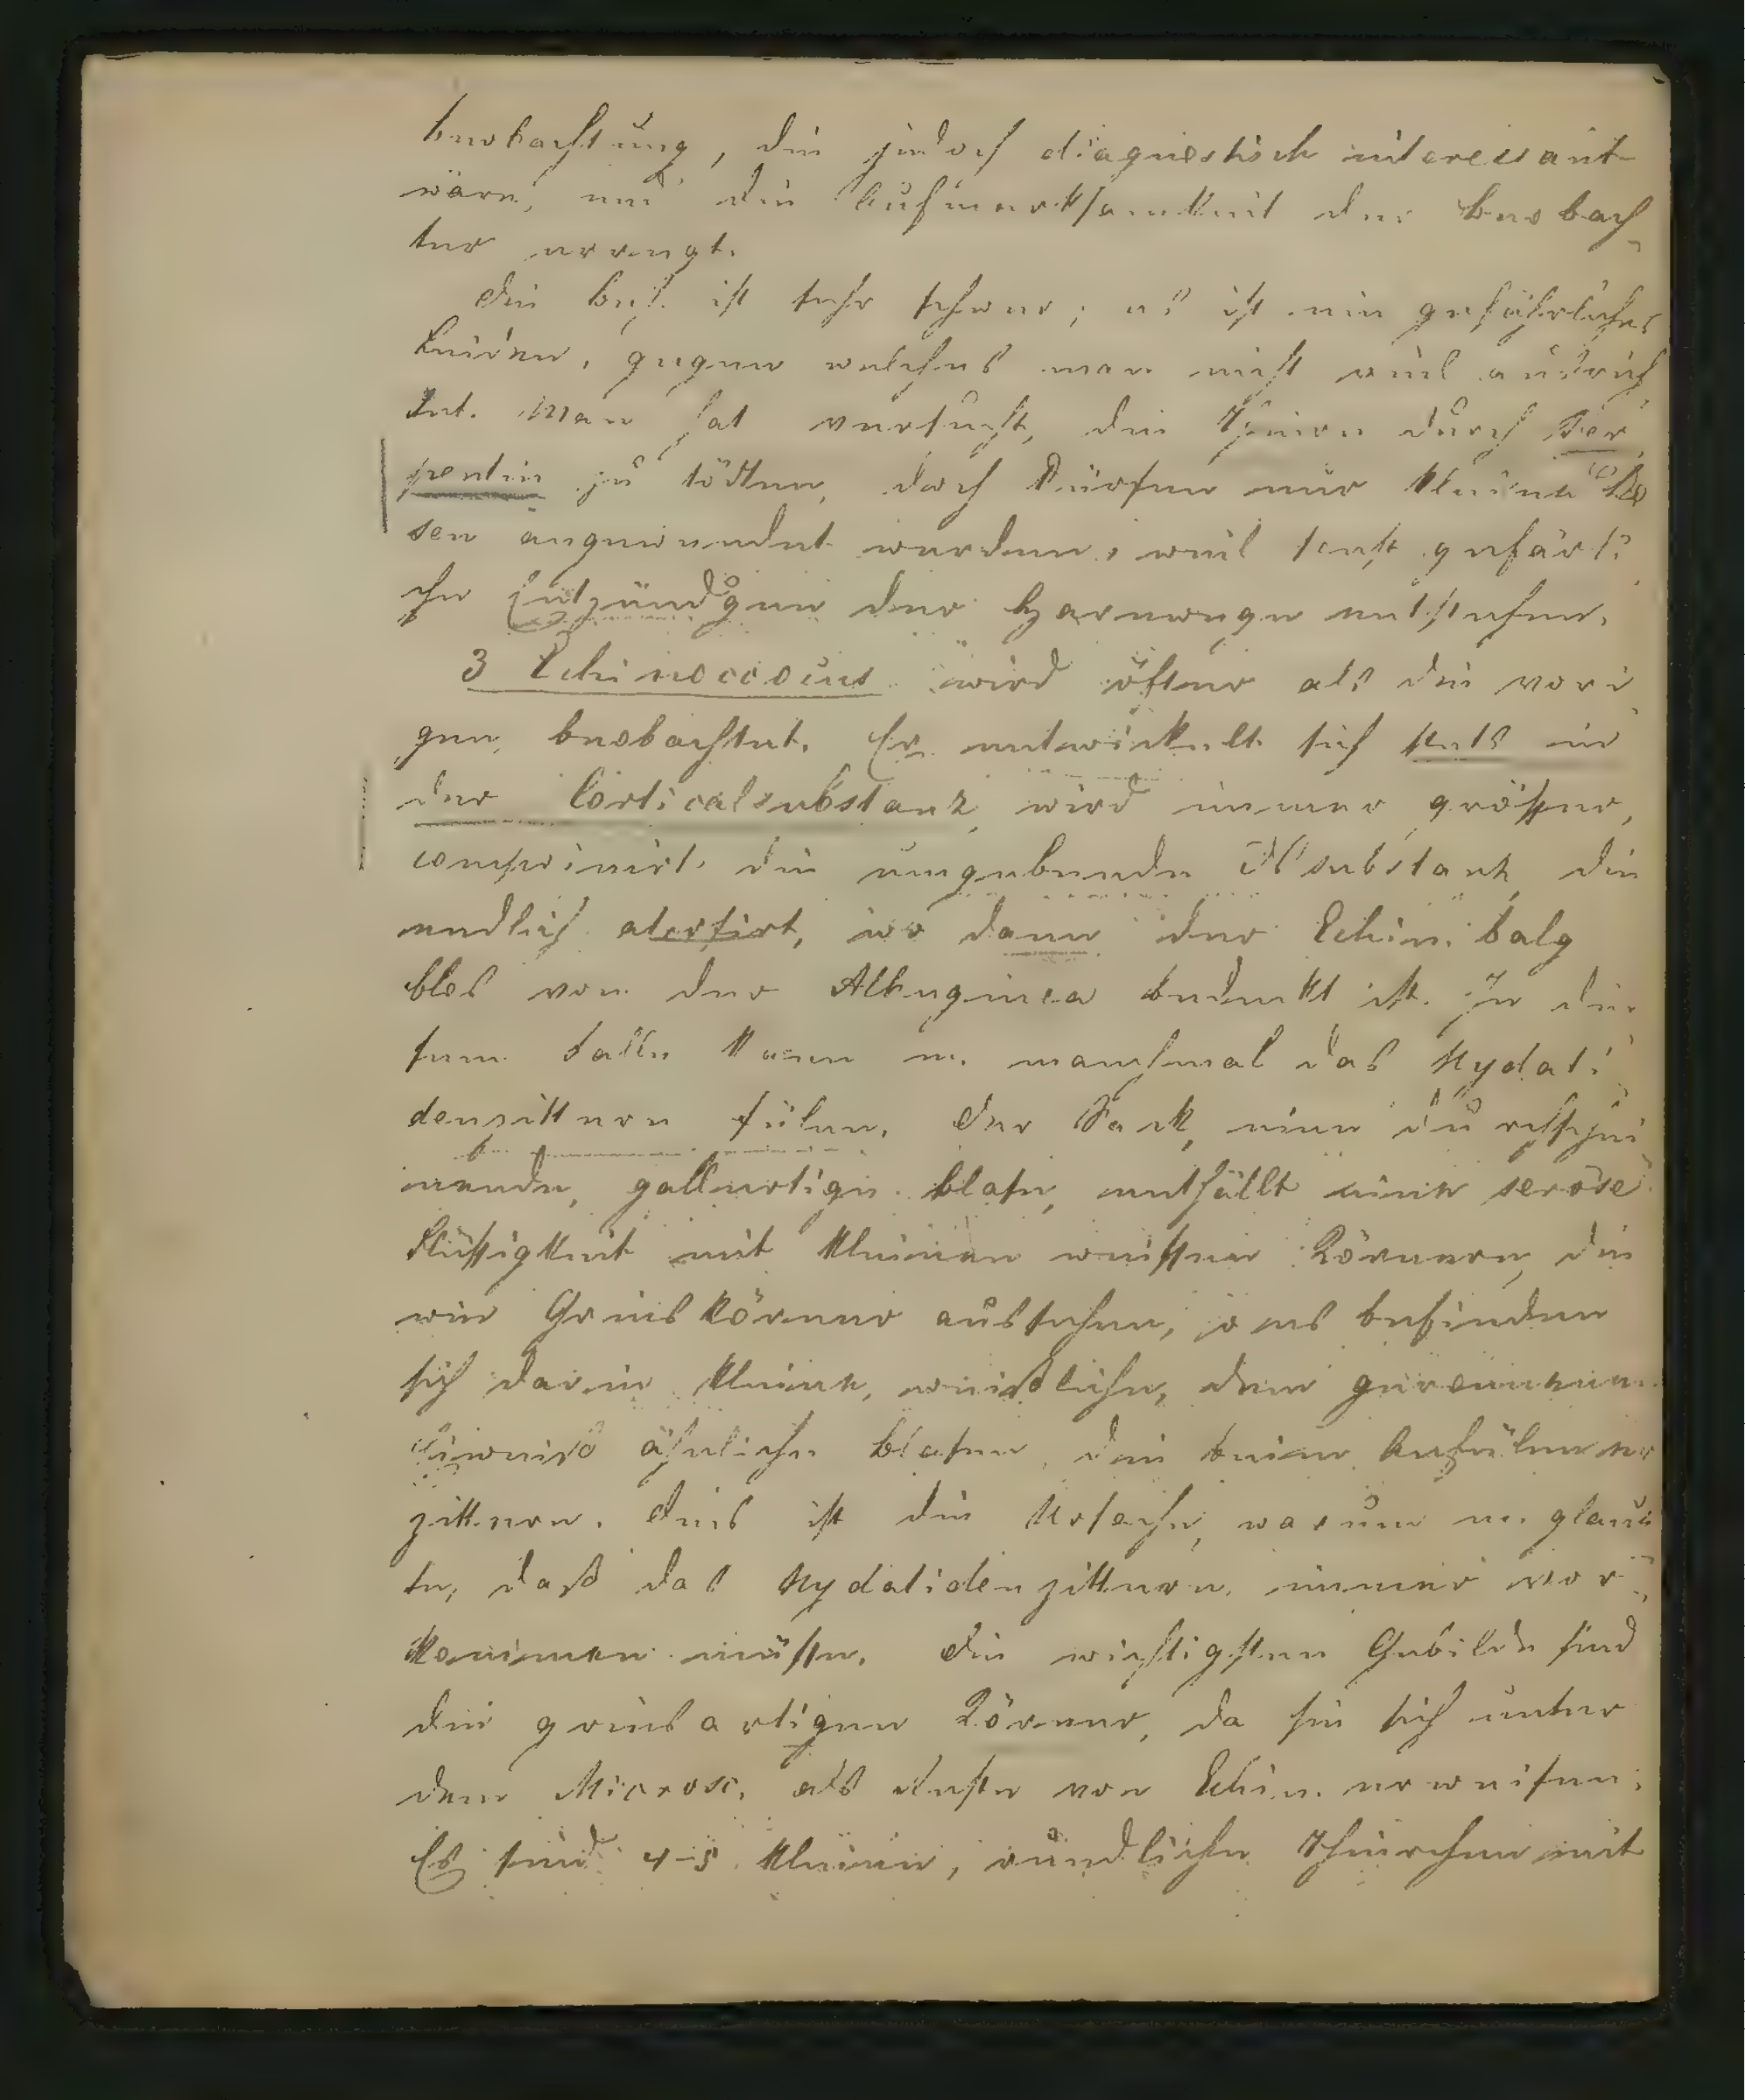 beobachtung, die jedoch diagnostisch interessant
wäre, und die Aufmerksamkeit der beobach
ter erregt.
Die beh. ist sehr schwer; es ist ein gefährliches
Leiden, gegen welches man nicht viel ausrich
tet. Man hat versucht, die Thiere durch Ter
pentin zu tödten, doch dürfen nur kleine Do
sen angewendet werden, weil sonst gefärli
che Entzündgen der Harnwege entstehen.
3 Echinococcus wird öfter als die vori
gen beobachtet. Er entwickelt sich stets in
der Corticalsubstanz, wird immer größer,
comprimirt die umgebende Nsubstanz, die
endlich atrofirt, wo dann der Echin. balg
blos von der Albuginea bedeckt ist. In die
sem Falle kann m. manchmal das Hydati
denzittern fülen. Der Sack, eine durchschei
nende, gallertige blase, enthällt eine seröse
Flüssigkeit mit kleinen weissen Körnern, die
wie Grieskörner aussehen, o es befinden
sich darin kleine, weißliche, dem geronnenen
Eiweiß ähnliche blasen, die beim Anfülen er
zittern. Dies ist die Ursache, warum m. glaub
te, daß das Hydatidenzittern immer vor
kommen müsse. Die wichtigsten Gebilde sind
die griesartigen Körner, da sie sich unter
dem Microsc. als Äste von Echin. erweisen.
Es sind 4-5 kleine, rundliche Thierchen mit